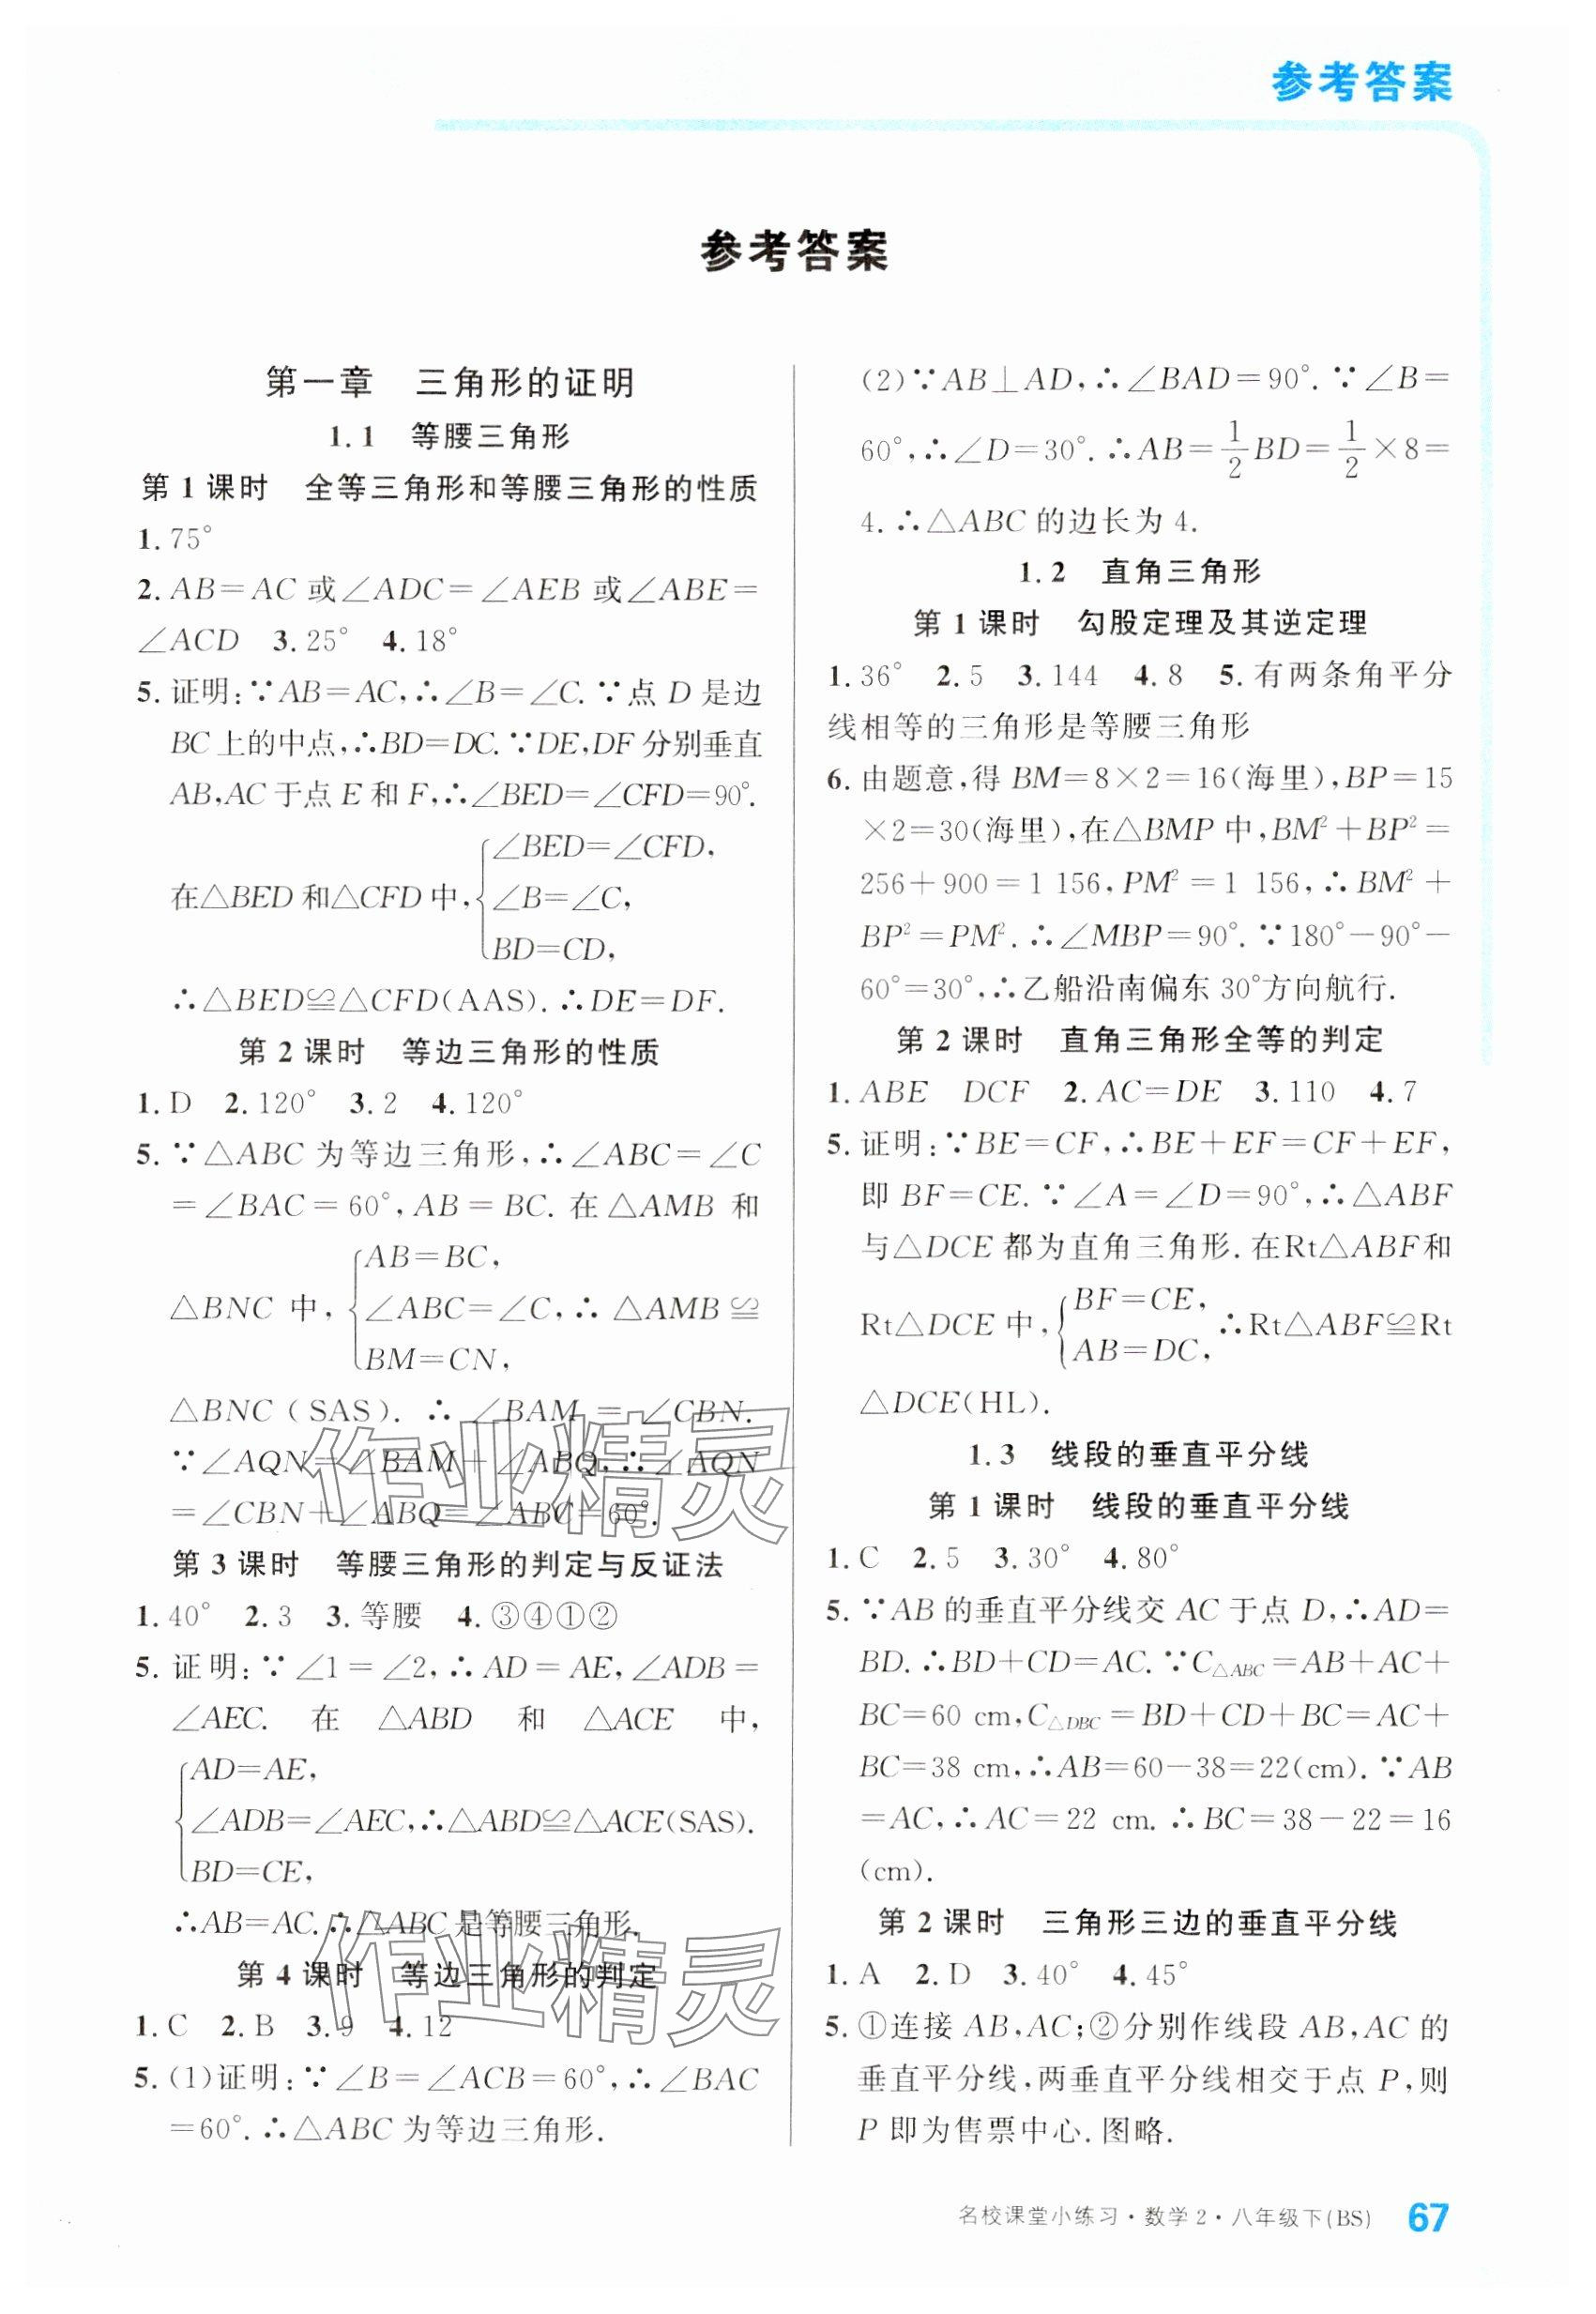 参考答案
参考答案
第一章 三角形的证明
1.1 等腰三角形
第1课时 全等三角形和等腰三角形的性质
1.75°
2.AB=AC或∠ADC=∠AEB或∠ABE=
∠ACD 3.25° 4.18°
5.证明:∵AB=AC,∴∠B=∠C.∵点D是边
BC上的中点,∴BD=DC.∵DE,DF分别垂直
AB,AC于点E和F,∴∠BED=∠CFD=90°.
∠BED=∠CFD,
在△BED和△CFD中,∠B=∠C,
BD=CD,
∴△BED≌△CFD(AAS).∴DE=DF.
第2课时 等边三角形的性质
1.D 2.120° 3.2 4.120°
5.∵△ABC为等边三角形,∴∠ABC=∠C
=∠BAC=60°,AB=BC.在△AMB和
AB=BC,
△BNC中,∠ABC=∠C,∴△AMB≌
BM=CN,
△BNC(SAS).∴∠BAM=∠CBN.
∵∠AQN=∠BAM+∠ABQ,∴∠AQN
=∠CBN+∠ABQ=∠ABC=60°.
第3课时 等腰三角形的判定与反证法
1.40° 2.3 3.等腰 4.③④①②
5.证明:∵∠1=∠2,∴AD=AE,∠ADB=
∠AEC.在△ABD和△ACE中,
AD=AE,
∠ADB=∠AEC,∴△ABD≌△ACE(SAS).
BD=CE,
∴AB=AC.∴△ABC是等腰三角形.
第4课时 等边三角形的判定
1.C 2.B 3.9 4.12
5.(1)证明:∵∠B=∠ACB=60°,∴∠BAC
=60°.∴△ABC为等边三角形.
(2)∵AB⊥AD,∴∠BAD=90°.∵∠B=
60°,∴∠D=30°.∴AB=1/2BD=1/2×8=
4.∴△ABC的边长为4.
1.2 直角三角形
第1课时 勾股定理及其逆定理
1.36° 2.5 3.144 4.8 5.有两条角平分
线相等的三角形是等腰三角形
6.由题意,得BM=8×2=16(海里),BP=15
×2=30(海里),在△BMP中,BM²+BP²=
256+900=1 156,PM²=1 156,∴BM²+
BP²=PM².∴∠MBP=90°.∵180°-90°-
60°=30°,∴乙船沿南偏东30°方向航行.
第2课时 直角三角形全等的判定
1.ABE DCF 2.AC=DE 3.110 4.7
5.证明:∵BE=CF,∴BE+EF=CF+EF,
即BF=CE.∵∠A=∠D=90°,∴△ABF
与△DCE都为直角三角形.在Rt△ABF和
BF=CE,
Rt△DCE中, ∴Rt△ABF≌Rt
AB=DC,
△DCE(HL).
1.3 线段的垂直平分线
第1课时 线段的垂直平分线
1.C 2.5 3.30° 4.80°
5.∵AB的垂直平分线交AC于点D,∴AD=
BD.∴BD+CD=AC.∵C△ABC=AB+AC+
BC=60 cm,C△DBC=BD+CD+BC=AC+
BC=38 cm,∴AB=60-38=22(cm).∵AB
=AC,∴AC=22 cm.∴BC=38-22=16
(cm).
第2课时 三角形三边的垂直平分线
1.A 2.D 3.40° 4.45°
5.①连接AB,AC;②分别作线段AB,AC的
垂直平分线,两垂直平分线相交于点P,则
P即为售票中心.图略.
作业精灵
作业精灵
名校课堂小练习·数学2·八年级下(BS) 67